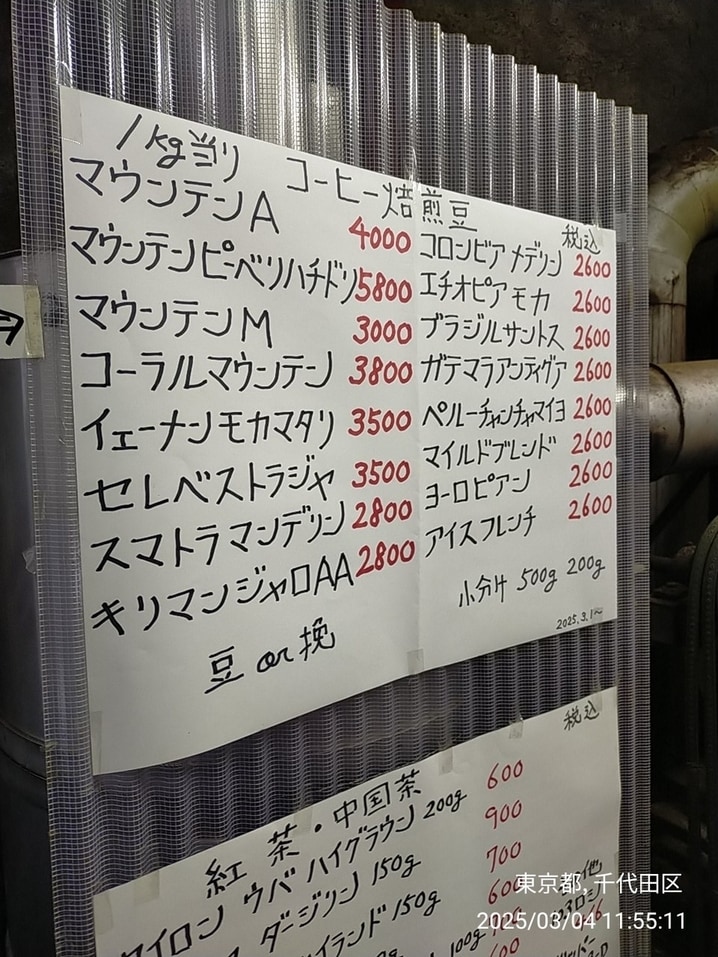 1kg当り コーヒー焙煎豆
税込
マウンテンA 4000
マウンテンピーベリハチドリ 5800
マウンテンM 3000
コーラルマウンテン 3800
イェーナンモカマタリ 3500
セレベストラジャ 3500
スマトラマンデリン 2800
キリマンジャロAA 2800
豆or挽
コロンビアメデリン 2600
エチオピアモカ 2600
ブラジルサントス 2600
ガテマラアンティグア 2600
ペルーチャンチャマイヨ 2600
マイルドブレンド 2600
ヨーロピアン 2600
アイスフレンチ 2600
小分け 500g 200g
2025.3.1~
税込
紅茶・中国茶
セイロン ウバ ハイグラウン 200g 600
ダージリン 150g 900
150g 700
100g
他
東京都,千代田区
2025/03/04 11:55:11